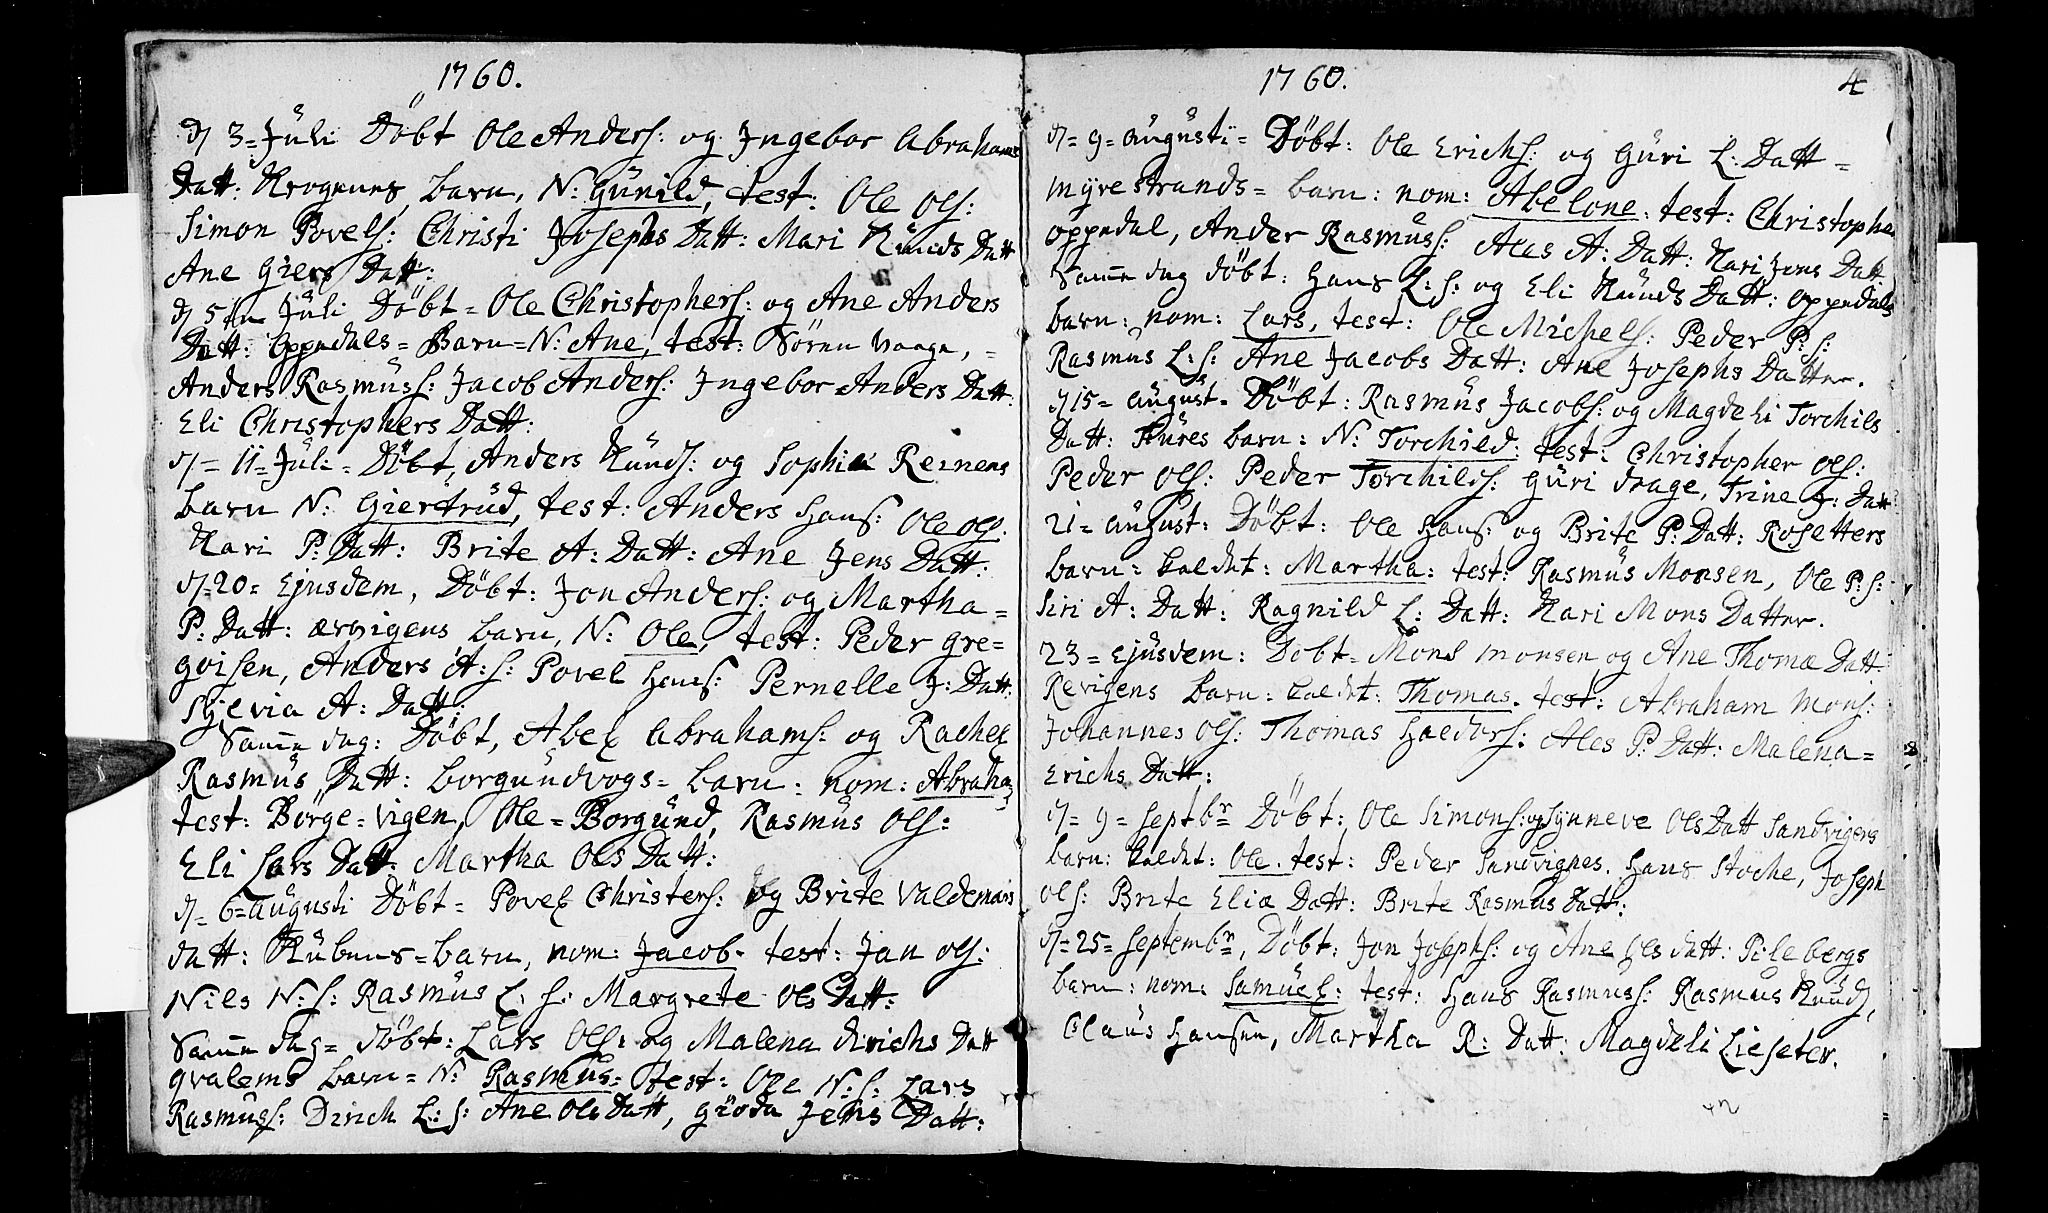 1760.
d 3 = Jüli Döbt Ole Anders: og Jngebor Abrahams
Datt: Krogenes barn, N: Günild, test: Ole Ols:
Simon Povels: Christi Josephs Datt: Mari Knüds Datt
Ane Giers Datt:
d 5te Jüli Döbt = Ole Christophers: og Ane Anders
Datt: Oppedals = Barn = N: Ane, test: Sören Vaage, =
Anders Rasmüss: Jacob Anders: Jngebor Anders Datt:
Eli Christophers Datt:
d = 11 = Jüli = Döbt, Anders Knüds: og Sophia Reinens
barn N: Giertrüd, test: Anders Hans: Ole Ols:
Kari P: Datt: Brite A: Datt: Ane Jens Datt:
d = 20 = Ejusdem, Döbt: Jon Anders: og Martha =
P: Datt: ærvigens barn, N: Ole, test: Peder Gre=
goisen, Anders A: s: Povel Hans: Pernelle J: Datt:
Sylvia A: Datt:
Samme dag: Döbt, Abel Abrahams: og Rachel
Rasmüs Datt: Borgündvogs = barn: nom: Abraham
test: Börge = Vigen, Ole = Borgünd, Rasmüs Ols:
Eli Lars Datt: Martha Ols Datt:
d = 6 = Augüsti Döbt = Povel Christers: og Brite Valdemars
datt: Kübens = barn, nom: Jacob. test: Jan Ols:
Nils N: s: Rasmüs L: s: Margrete Ols Datt:
Samme dag = döbt: Lars Ols: og Malena dirichs Datt
qvalems barn = N: Rasmüs = test: Ole N: s: Lars
Rasmüss: Dirich L: s: Ane Ols Datt, Giöda Jens Datt:
1760.
4
d = 9 = Augüsti = Döbt: Ole Erichs: og Güri L: Datt =
Myrestrands = barn: nom: Abelone: test: Christopher
oppedal, Ander Rasmüss: Ales A: Datt: Kari Jens Datt
Samme dag döbt: Hans L: s: og Eli Knüds Datt: Oppedals
barn: nom: Lars, test: Ole Michels: Peder P: s:
Rasmüs L: s: Ane Jacobs Datt: Ane Josephs Datter.
d 15 = Augüst = Döbt: Rasmüs Jacobs: og Magdeli Torchils
Datt: Türes barn: N: Torchild: test: Christopher Ols:
Peder Ols: Peder Torchilds: Güri drage, Trine J: Datt
21 = Augüst: Döbt: Ole Hans: og Brite P: Datt: Rosetters
barn: kaldet: Martha: test: Rasmüs Monsen, Ole P: s:
Siri A: Datt: Ragnild L: Datt: Kari Mons Datter.
23 = Ejusdem: Döbt = Mons Monsen og Ane Thomæ Datt
Revigens barn: kaldet: Thomas. test: Abraham Mons:
Johannes Ols: Thomas Haldors: Ales P: Datt: Malena =
Erichs Datt:
d = 9 = Septbr Döbt: Ole Simons: og Synneve Ols Datt Sandvigens
barn: kaldet: Ole. test: Peder Sandvignes. Hans Stoche, Joseph
Ols: Brite Eliæ Datt: Brite Rasmus Datt:
d = 25 = Septembr, Döbt: Jon Josephs: og Ane Ols datt: Pilebergs
barn: nom: Samüel: test: Hans Rasmuss: Rasmus Knüds,
Claüs Hansen, Martha R: Datt: Magdeli Lieseter.